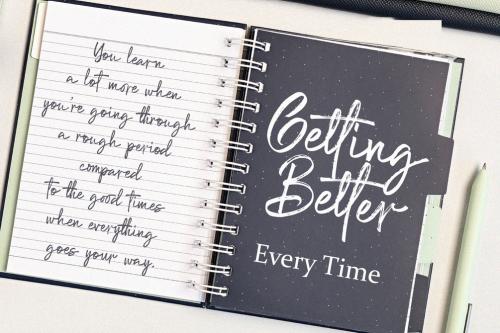 You learn
a lot more when
you're going through
a rough period
compared
to the good times
when everything
goes your way.
Getting
Better
Every Time